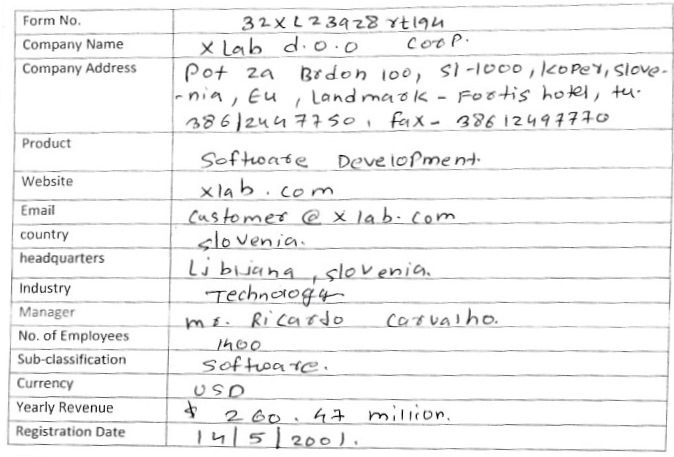 Form No. 32XL23928rt19u
Company Name XLab d.o.o Corp.
Company Address Pot za Brdon 100, SI-1000, Koper, Slove-
-nia, Eu, Landmark - Fortis hotel, tu.
386/2447750, fax- 38612497770
Product Software Development.
Website xlab.com
Email customer@xlab.com
country slovenia.
headquarters Libijana, slovenia.
Industry Technology
Manager mr. Ricardo Carvalho.
No. of Employees 1400
Sub-classification Software.
Currency USD
Yearly Revenue $ 260.47 million.
Registration Date 14/5/2001.